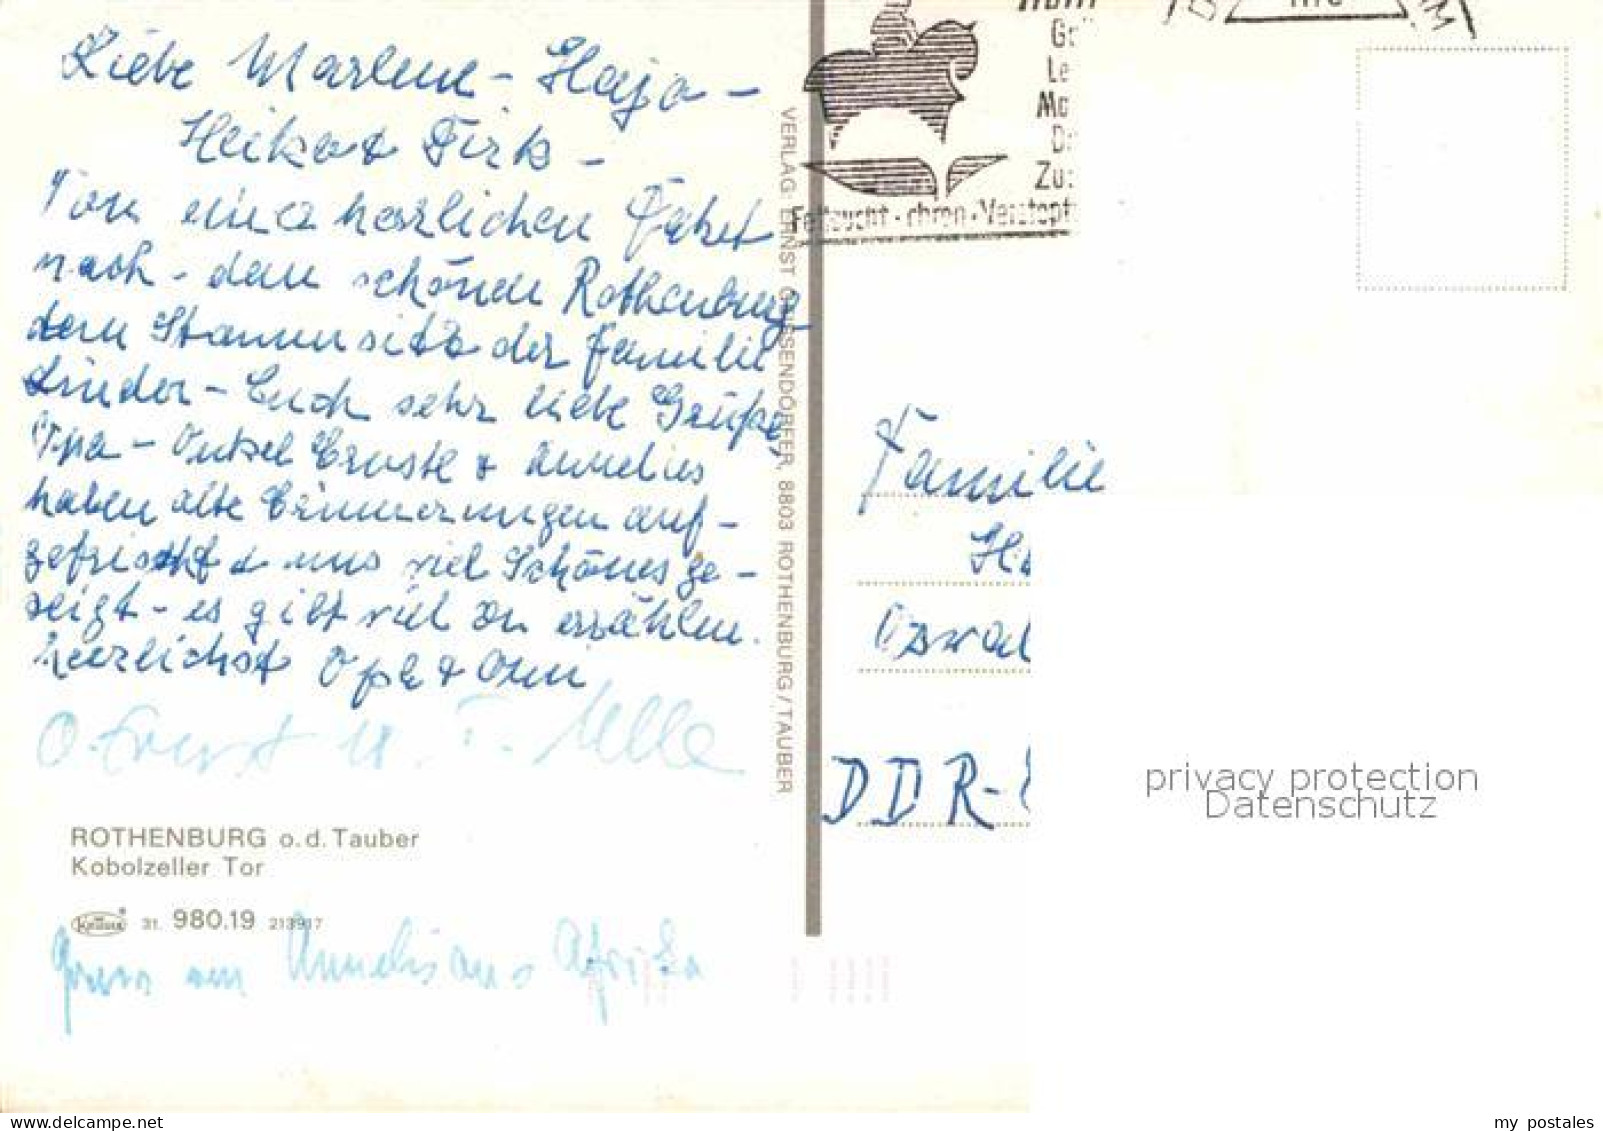 Liebe Marlene - Hajo -
Heiko & Dirk -
Von einer herrlichen Fahrt
nach - dem schönen Rothenburg
dem Stammsitz der Familie
Linder - Euch sehr liebe Grüße,
Opa - Onkel Ernst & Annelies
haben alte Erinnerungen auf-
gefrischt & uns viel Schönes ge-
zeigt - es gibt viel zu erzählen.
herzlichst Opa & Omi
O. Ernst u. T.
ROTHENBURG o. d. Tauber
Kobolzeller Tor
Krüger 31. 980.19 213917
Gruss von Annelis aus Afrika
VERLAG: ERNST GEISSENDÖRFER, 8803 ROTHENBURG / TAUBER
Le
Mo
Zu
Fettsucht · chron. Verstopf
Familie
DDR-
privacy protection
Datenschutz
Delcampe.net
my_postales